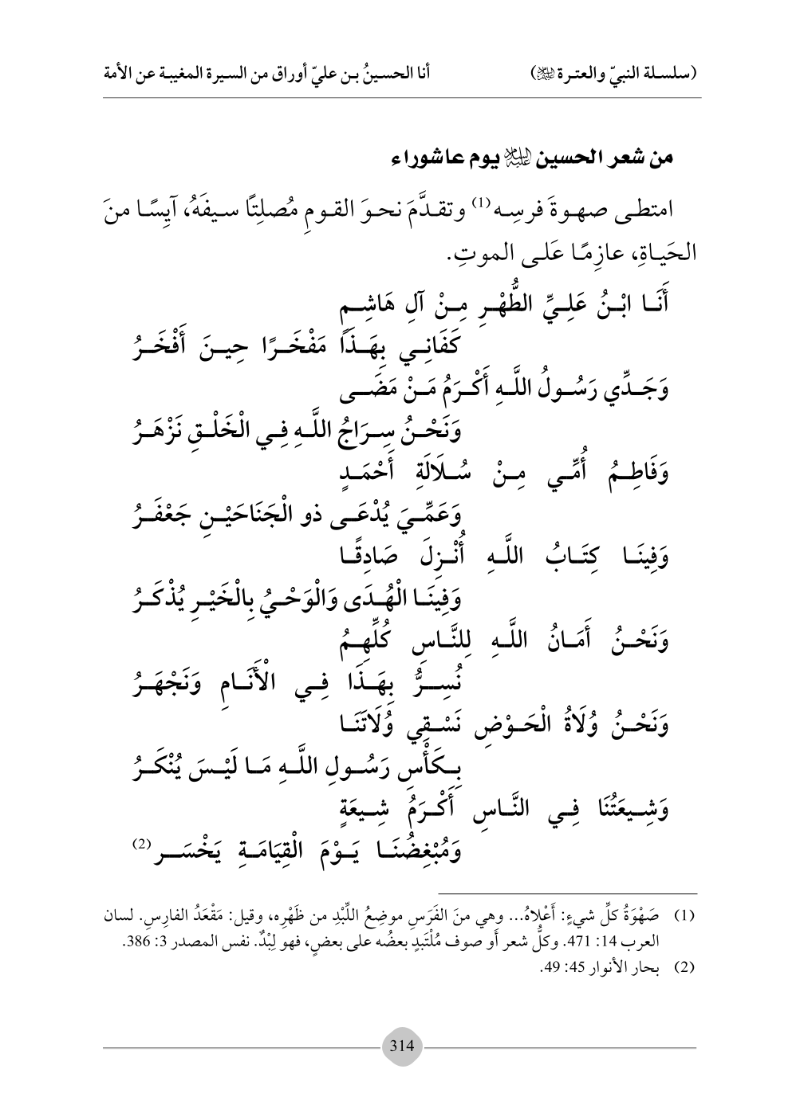 (سلسلة النبيّ والعترة ﷺ) أنا الحسينُ بن عليّ أوراق من السيرة المغيبة عن الأمة
من شعر الحسين عليه السلام يوم عاشوراء
امتطى صهوةَ فرسِه(1) وتقدَّمَ نحوَ القومِ مُصلِتًا سيفَهُ، آيِسًا منَ
الحَياةِ، عازِمًا عَلى الموتِ.
أَنَا ابْنُ عَلِيِّ الطُّهْرِ مِنْ آلِ هَاشِمٍ
كَفَانِي بِهَذَا مَفْخَرًا حِينَ أَفْخَرُ
وَجَدِّي رَسُولُ اللَّهِ أَكْرَمُ مَنْ مَضَى
وَنَحْنُ سِرَاجُ اللَّهِ فِي الْخَلْقِ نَزْهَرُ
وَفَاطِمُ أُمِّي مِنْ سُلَالَةِ أَحْمَدٍ
وَعَمِّيَ يُدْعَى ذو الْجَنَاحَيْنِ جَعْفَرُ
وَفِينَا كِتَابُ اللَّهِ أُنْزِلَ صَادِقًا
وَفِينَا الْهُدَى وَالْوَحْيُ بِالْخَيْرِ يُذْكَرُ
وَنَحْنُ أَمَانُ اللَّهِ لِلنَّاسِ كُلِّهِمُ
نُسِرُّ بِهَذَا فِي الْأَنَامِ وَنَجْهَرُ
وَنَحْنُ وُلَاةُ الْحَوْضِ نَسْقِي وُلَاتَنَا
بِكَأْسِ رَسُولِ اللَّهِ مَا لَيْسَ يُنْكَرُ
وَشِيعَتُنَا فِي النَّاسِ أَكْرَمُ شِيعَةٍ
وَمُبْغِضُنَا يَوْمَ الْقِيَامَةِ يَخْسَر(2)
(1) صَهْوَةُ كلِّ شيءٍ: أَعْلاهُ... وهي منَ الفَرَسِ موضِعُ اللِّبْدِ من ظَهْرِه، وقيل: مَقْعَدُ الفارِسِ. لسان
العرب 14: 471. وكلُّ شعر أَو صوف مُلْتَبِدٍ بعضُه على بعضٍ، فهو لِبْدٌ. نفس المصدر 3: 386.
(2) بحار الأنوار 45: 49.
314